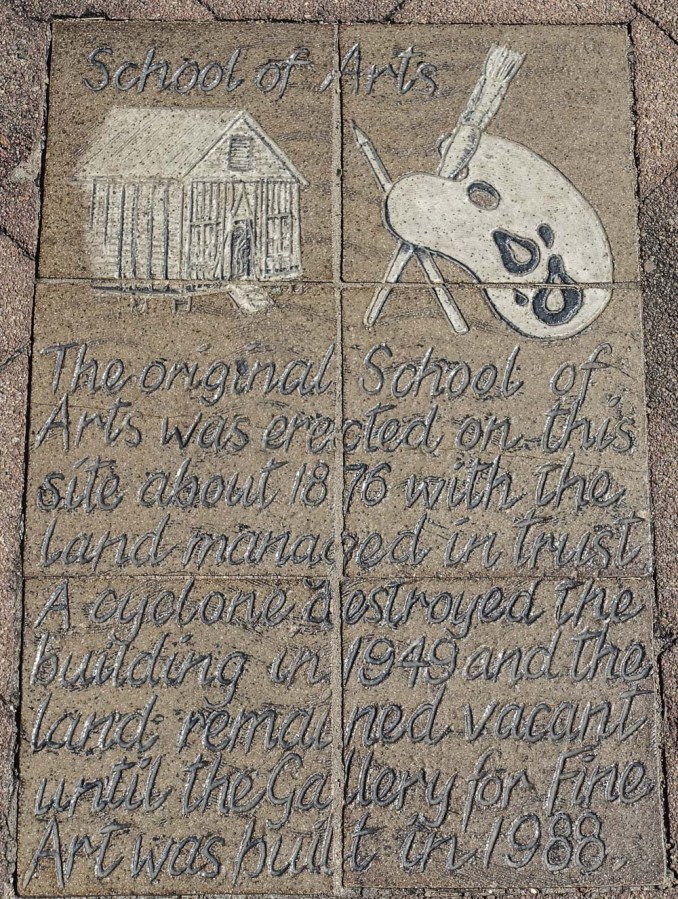 School of Arts
The original School of
Arts was erected on this
site about 1876 with the
land managed in trust
A cyclone destroyed the
building in 1949 and the
land remained vacant
until the Gallery for Fine
Art was built in 1988.